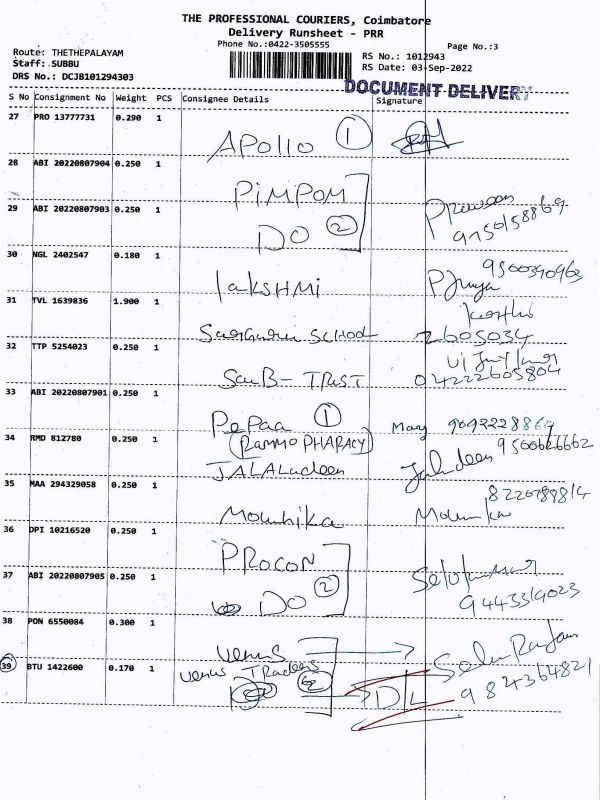 THE PROFESSIONAL COURIERS, Coimbatore
Delivery Runsheet - PRR
Phone No.:0422-3505555
Page No.:3
Route: THETHEPALAYAM
Staff: SUBBU
DRS No.: DCJB101294303
RS No.: 1012943
RS Date: 03-Sep-2022
DOCUMENT DELIVERY
S No Consignment No Weight PCS Consignee Details Signature
27 PRO 13777731 0.290 1
APollo 1
28 ABI 20220807904 0.250 1
PIMPOM
29 ABI 20220807903 0.250 1
DO 2
Praveen
9750158869
30 NGL 2402547 0.180 1
LAKSHMI
9500390963
31 TVL 1639836 1.900 1
SCHOOL
2605034
32 TTP 5254023 0.250 1
SauB - TRUST
04222605804
33 ABI 20220807901 0.250 1
PePaa 1
9092228869
34 RMD 812780 0.250 1
(RAMMO PHARACY)
JALALudeen
9500626662
35 MAA 294329058 0.250 1
Mounika
8220789814
Mounika
36 DPI 10216520 0.250 1
PROCON
37 ABI 20220807905 0.250 1
DO 2
9443319023
38 PON 6550084 0.300 1
Venus
39 BTU 1422600 0.170 1
Venus Traders
D/L
9824364821